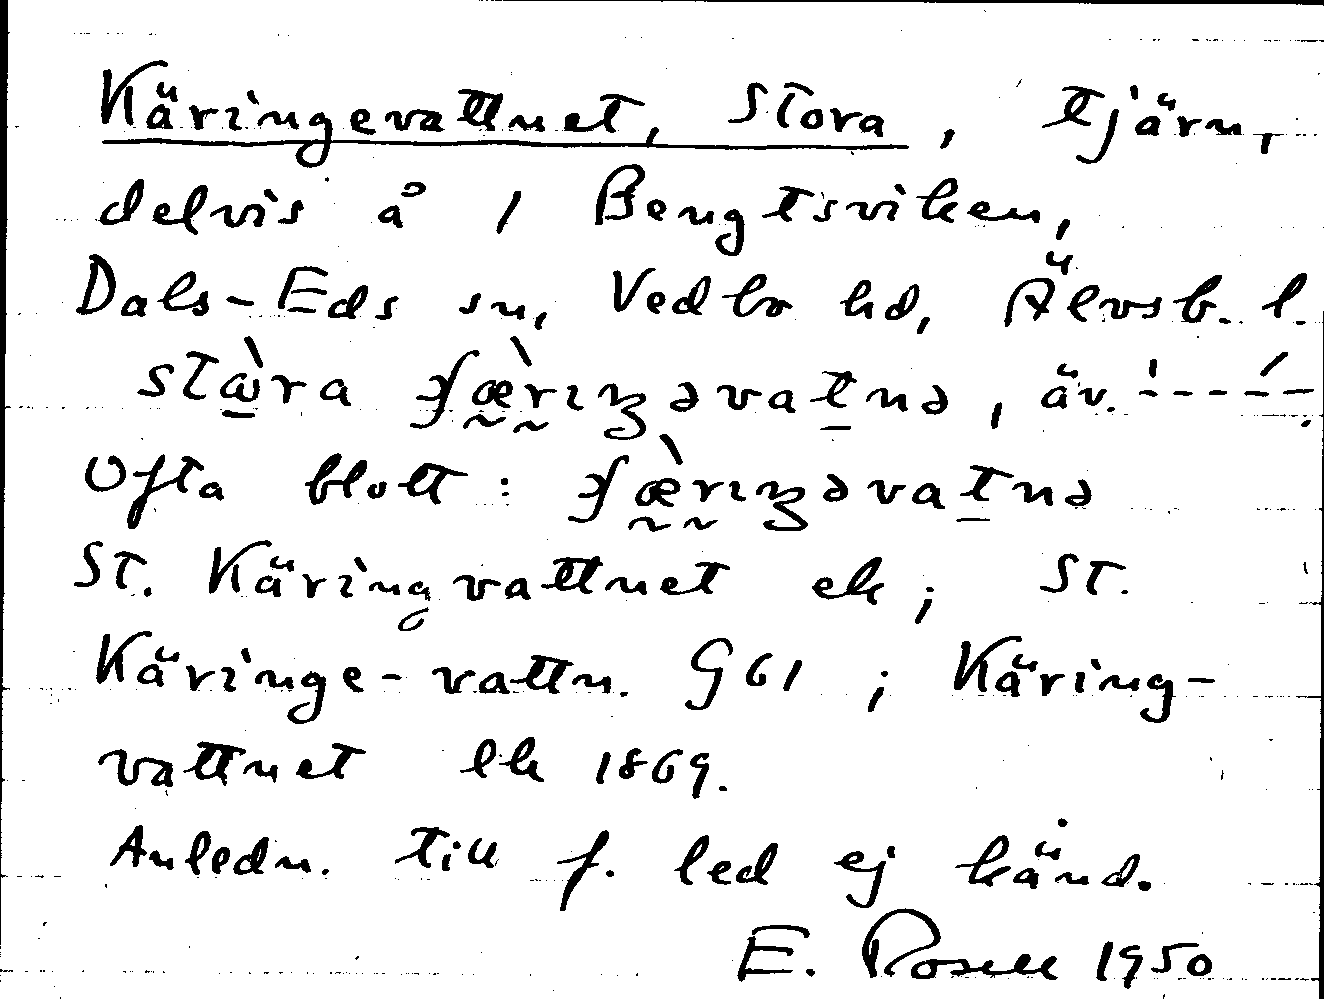 Käringevattnet, Stora, tjärn,
delvis å 1 Bengtsviken,
Dals-Eds sn, Vedbo hd, Älvsb. l.
stὼra ʃæ̀rıŋəvatnə, äv. ˈ----́-.
Ofta blott: ʃæ̀rıŋəvatnə
St. Käringvattnet ek; St.
Käringe-vattn. G61; Käring-
vattnet lk 1869.
Anledn. till f. led ej känd.
E. Rosell 1950